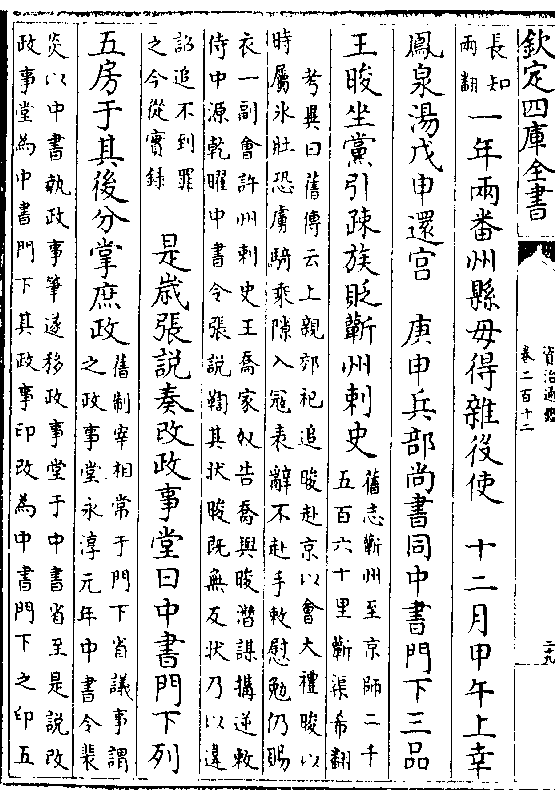 欽定四庫全書
資治通鑑
卷二百十二
長知
兩翻
一年兩番州縣毋得雜役使　十二月甲午上幸
鳳泉湯戊申還宫　庚申兵部尚書同中書門下三品
王晙坐黨引疎族貶蘄州刺史
舊志蘄州至京師二千
五百六十里蘄渠希翻
考異曰舊傳云上親郊祀追晙赴京以會大禮晙以
時屬氷壯恐虜騎乘隙入冦表辭不赴手敕慰勉仍賜
衣一副會許州刺史王喬家奴告喬與晙潛謀搆逆敕
侍中源乾曜中書令張説鞫其狀晙既無反狀乃以違
詔追不到罪
之今從實錄
是歲張説奏改政事堂曰中書門下列
五房于其後分掌庶政
舊制宰相常于門下省議事謂
之政事堂永淳元年中書令裴
炎以中書執政事筆遂移政事堂于中書省至是説改
政事堂為中書門下其政事印改為中書門下之印五